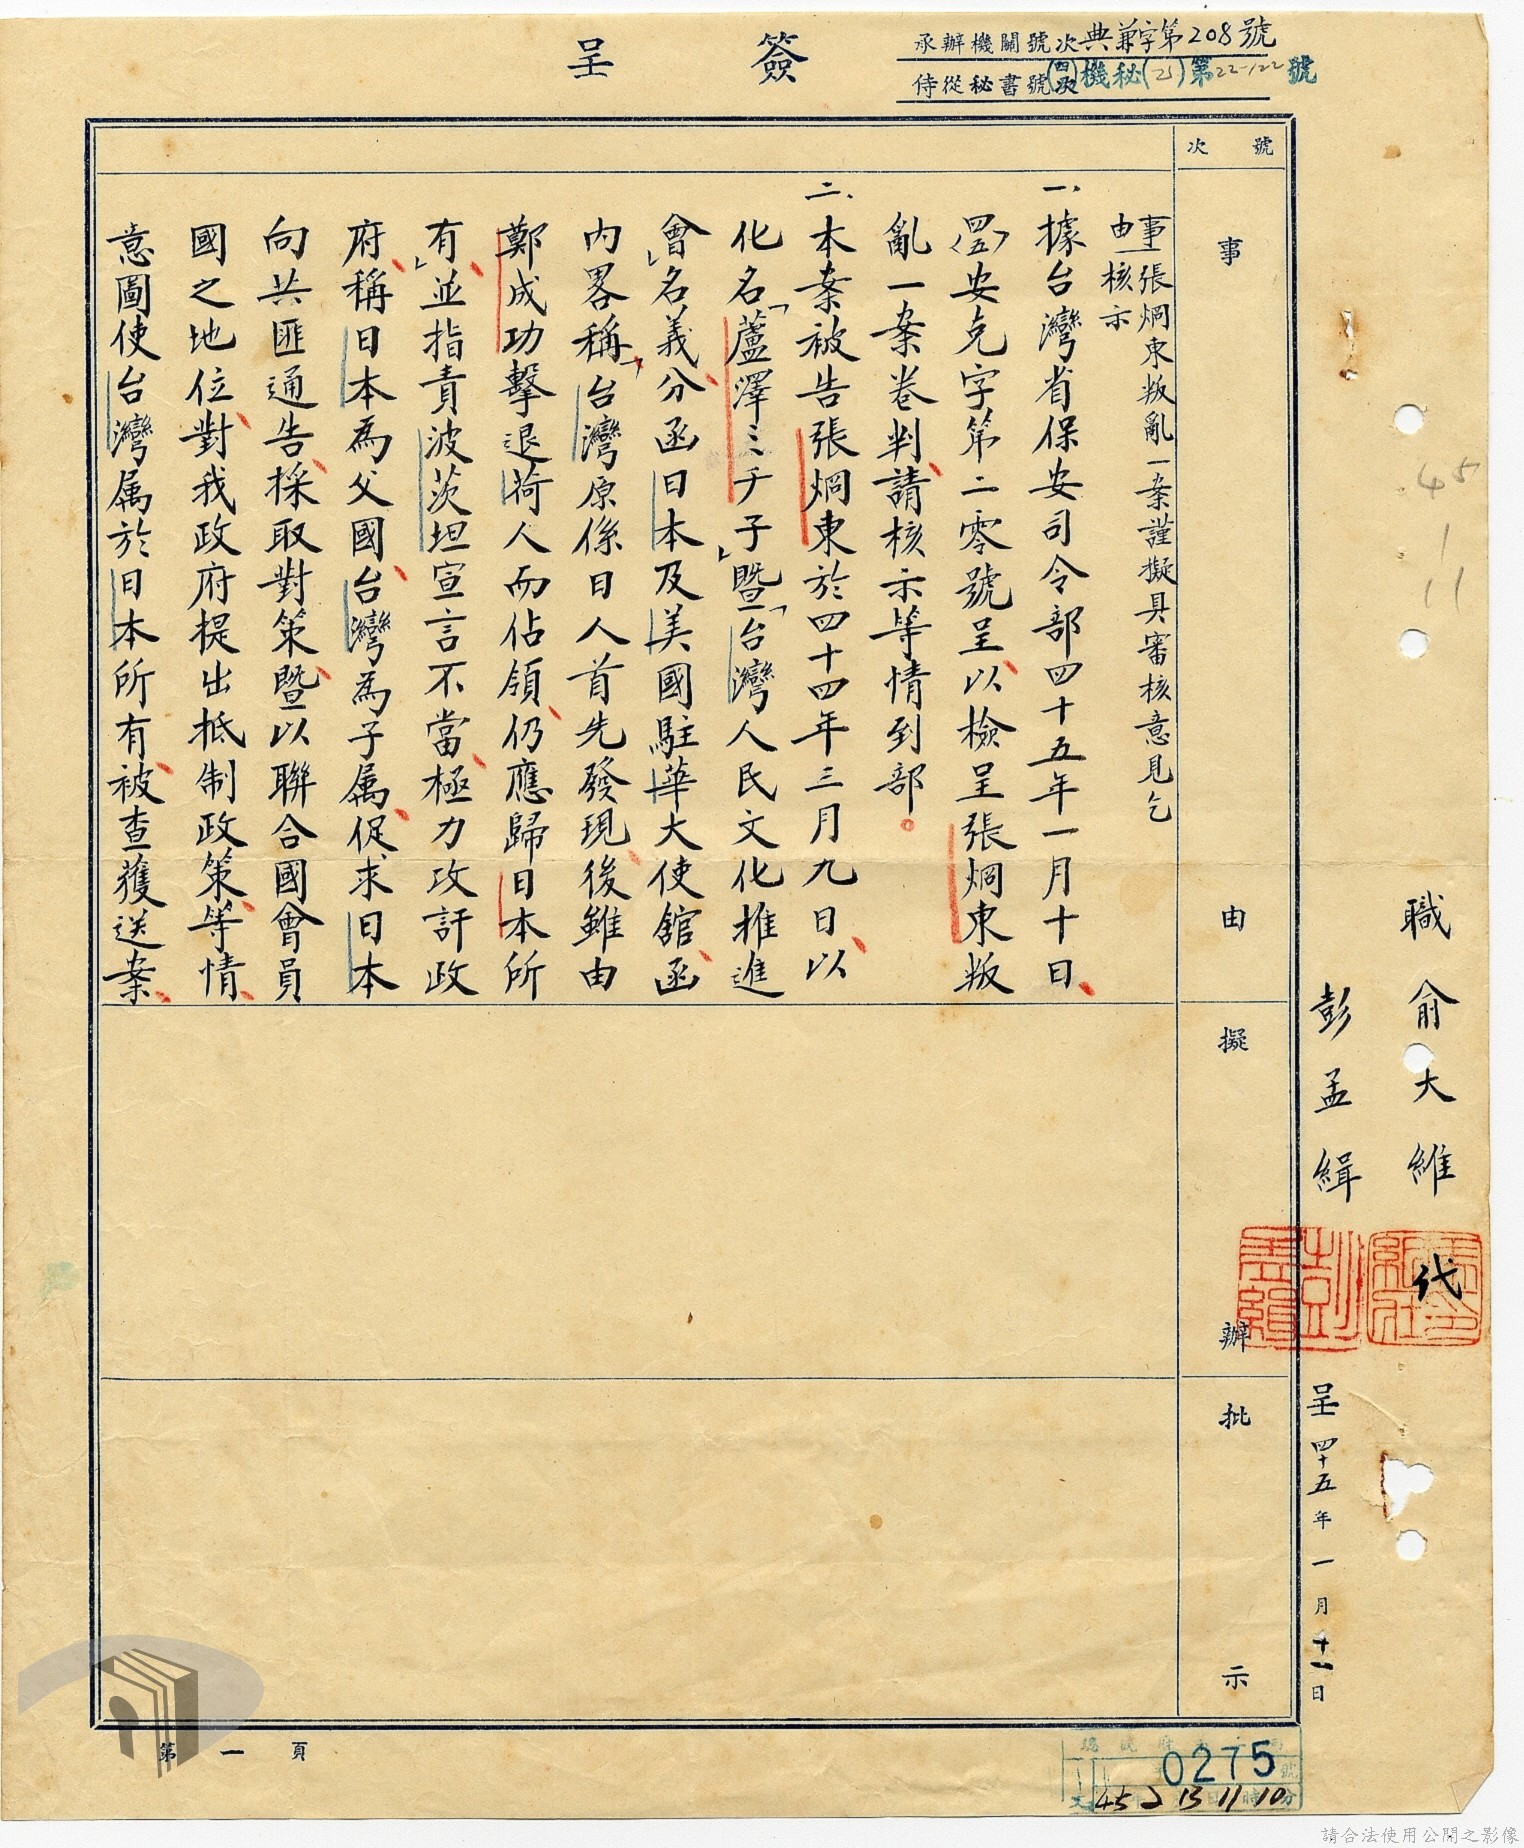 簽呈
承辦機關號次典兼字第208號
侍從秘書號次機秘(四五)第22-122號
號次
事由
擬辦
批示
事由：張烱東叛亂一案謹擬具審核意見乞
核示
一、據台灣省保安司令部四十五年一月十日、
(四五)安克字第二零號呈、以檢呈張烱東叛
亂一案卷判、請核示等情到部。
二、本案被告張烱東於四十四年三月九日、以
化名「蘆澤ミチ子」暨「台灣人民文化推進
會」名義、分函日本及美國駐華大使舘、函
內畧稱、「台灣原係日人首先發現、後雖由
鄭成功擊退荷人而佔領、仍應歸日本所
有」、並指責波茨坦宣言不當、極力攻訐政
府、稱日本為父國、台灣為子属、促求日本
向共匪通告、採取對策、暨以聯合國會員
國之地位、對我政府提出抵制政策、等情、
意圖使台灣属於日本所有、被查獲送案、
職俞大維
彭孟緝
代
呈 四十五年一月十一日
45
1
11
第一頁
0275
45 2 13 11 10
請合法使用公開之影像